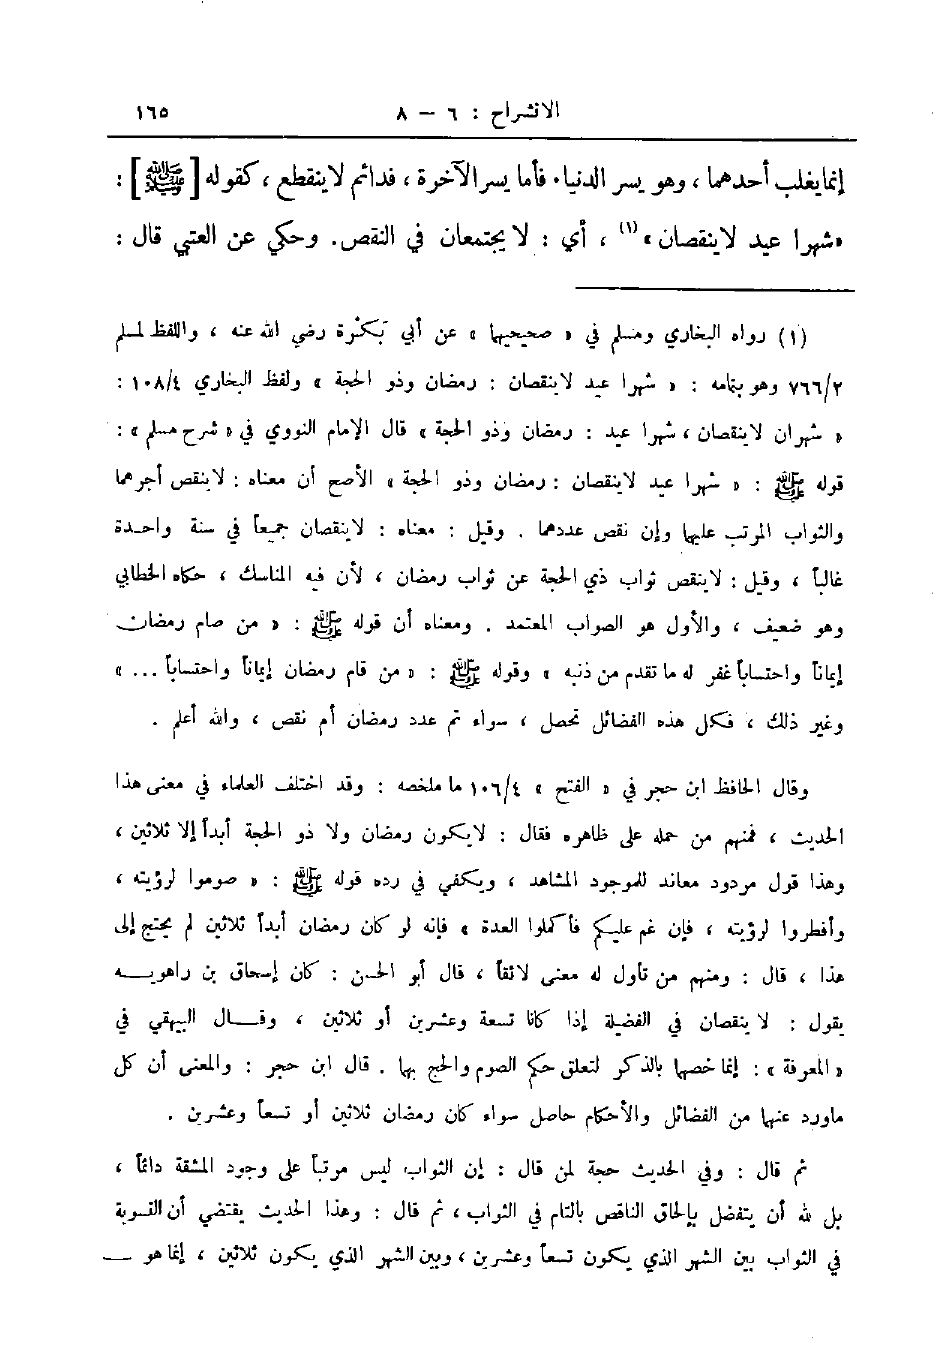 الانشراح : ٦ – ٨ ١٦٥
إنما يغلب أحدهما ، وهو يسر الدنيا . فأما يسر الآخرة ، فدائم لا ينقطع ، كقوله [ ﷺ ] :
« شهرا عيد لا ينقصان » (١) ، أي : لا يجتمعان في النقص . وحكي عن العتبي قال :
(١) رواه البخاري ومسلم في « صحيحيهما » عن أبي بَكْرة رضي الله عنه ، واللفظ لمسلم
٧٦٦/٢ وهو بتمامه : « شهرا عيد لا ينقصان : رمضان وذو الحجة » ولفظ البخاري ١٠٨/٤ :
« شهران لا ينقصان ، شهرا عيد : رمضان وذو الحجة » قال الإمام النووي في « شرح مسلم » :
قوله ﷺ : « شهرا عيد لا ينقصان : رمضان وذو الحجة » الأصح أن معناه : لا ينقص أجرهما
والثواب المرتب عليهما وإن نقص عددهما . وقيل : معناه : لا ينقصان جميعاً في سنة واحدة
غالباً ، وقيل : لا ينقص ثواب ذي الحجة عن ثواب رمضان ، لأن فيه المناسك ، حكاه الخطابي
وهو ضعيف ، والأول هو الصواب المعتمد . ومعناه أن قوله ﷺ : « من صام رمضان
إيماناً واحتساباً غفر له ما تقدم من ذنبه » وقوله ﷺ : « من قام رمضان إيماناً واحتساباً ... »
وغير ذلك ، فكل هذه الفضائل تحصل ، سواء تم عدد رمضان أم نقص ، والله أعلم .
وقال الحافظ ابن حجر في « الفتح » ١٠٦/٤ ما ملخصه : وقد اختلف العلماء في معنى هذا
الحديث ، فمنهم من حمله على ظاهره فقال : لا يكون رمضان ولا ذو الحجة أبداً إلا ثلاثين ،
وهذا قول مردود معاند للموجود المشاهد ، ويكفي في رده قوله ﷺ : « صوموا لرؤيته ،
وأفطروا لرؤيته ، فإن غم عليكم فأكملوا العدة » فإنه لو كان رمضان أبداً ثلاثين لم يحتج إلى
هذا ، قال : ومنهم من تأول له معنى لائقاً ، قال أبو الحسن : كان إسحاق بن راهويه
يقول : لا ينقصان في الفضيلة إذا كانا تسعة وعشرين أو ثلاثين ، وقال البيهقي في
« المعرفة » : إنما خصهما بالذكر لتعلق حكم الصوم والحج بهما . قال ابن حجر : والمعنى أن كل
ما ورد عنهما من الفضائل والأحكام حاصل سواء كان رمضان ثلاثين أو تسعاً وعشرين .
ثم قال : وفي الحديث حجة لمن قال : إن الثواب ليس مرتباً على وجود المشقة دائماً ،
بل لله أن يتفضل بإلحاق الناقص بالتام في الثواب ، ثم قال : وهذا الحديث يقتضي أن التسوية
في الثواب بين الشهر الذي يكون تسعاً وعشرين ، وبين الشهر الذي يكون ثلاثين ، إنما هو —